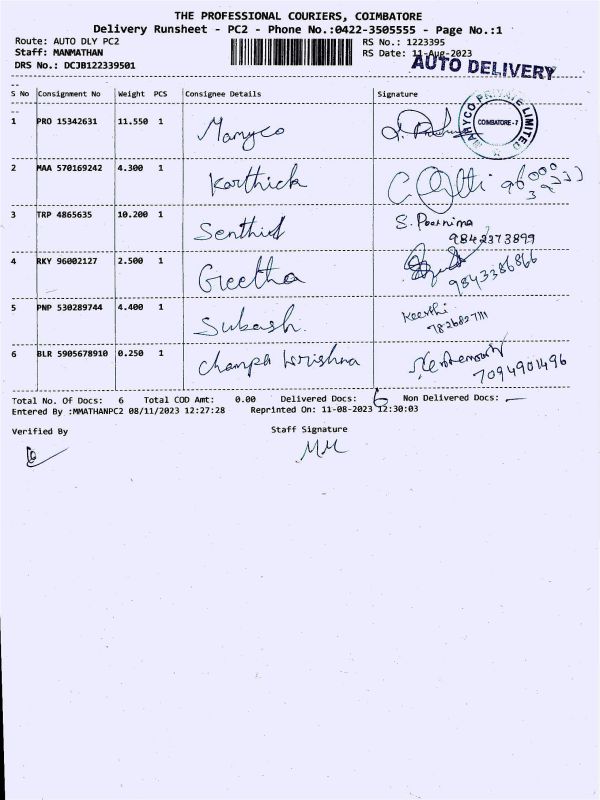 THE PROFESSIONAL COURIERS, COIMBATORE
Delivery Runsheet - PC2 - Phone No.:0422-3505555 - Page No.:1
Route: AUTO DLY PC2 RS No.: 1223395
Staff: MANMATHAN RS Date: 11-Aug-2023
DRS No.: DCJB122339501 AUTO DELIVERY
S No Consignment No Weight PCS Consignee Details Signature
1 PRO 15342631 11.550 1
MARYCO PRIVATE LIMITED
COIMBATORE - 7
2 MAA 570169242 4.300 1 Karthick
3 TRP 4865635 10.200 1 Senthil S. Poornima
9842373899
4 RKY 96002127 2.500 1 Geetha 9843386866
5 PNP 530289744 4.400 1 Subash. Keerthi
7826827111
6 BLR 5905678910 0.250 1 Champa krishna
7094901496
Total No. Of Docs: 6 Total COD Amt: 0.00 Delivered Docs: 6 Non Delivered Docs: —
Entered By :MMATHANPC2 08/11/2023 12:27:28 Reprinted On: 11-08-2023 12:30:03
Verified By Staff Signature
MM